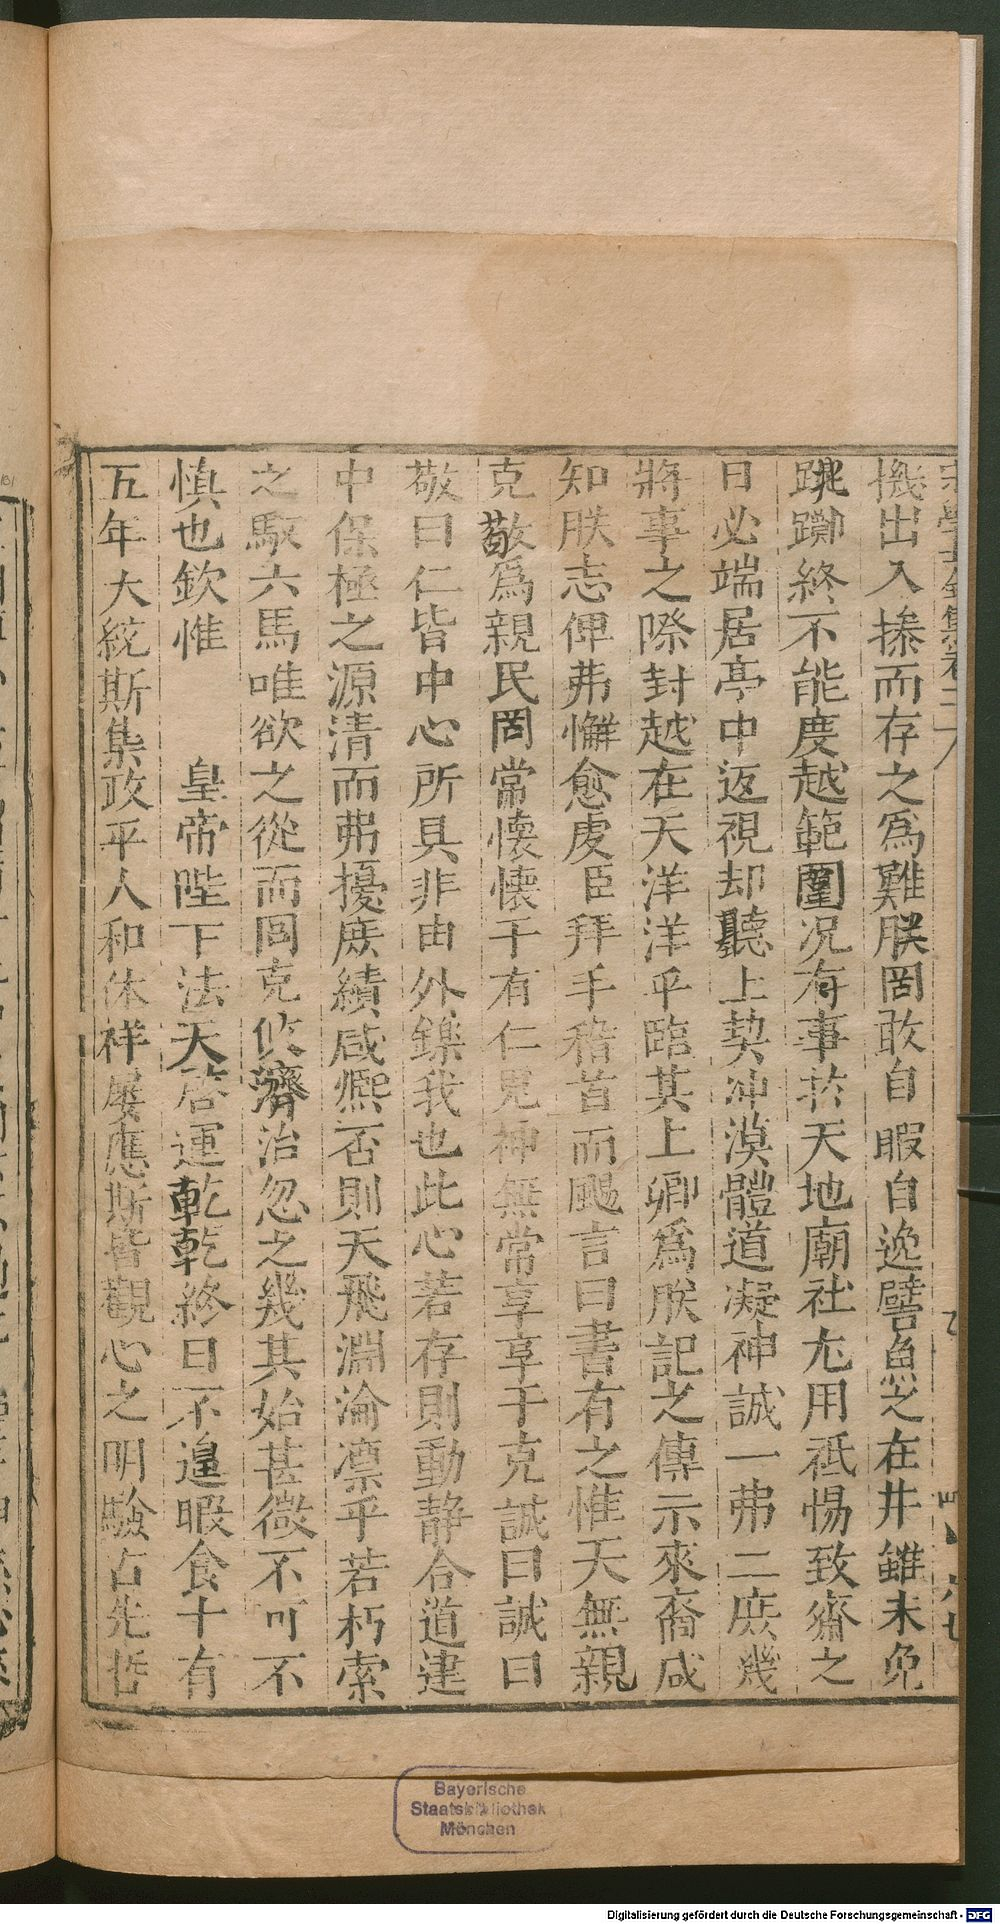 機出入搽而存之爲難朕罔敢自暇自逸譬魚之在井雖未免
跳躑終不能度越範圍况有事於天地廟社尤用祗惕致齋之
日必端居亭中返視却聽上契冲漠體道凝神誠一弗二庶幾
將事之際封越在天洋洋乎臨其上卿爲朕記之傳示來裔咸
知朕志俾弗懈愈虔臣拜手稽首而颺言曰書有之惟天無親
克敬爲親民罔常懷懷于有仁鬼神無常享享于克誠曰誠曰
敬曰仁皆中心所具非由外鑠我也此心若存則動静合道建
中保極之源清而弗擾庶績咸熈否則天飛淵淪凛乎若朽索
之馭六馬唯欲之從而罔克攸濟治忽之幾其始甚微不可不
慎也欽惟 皇帝陛下法天啓運乾乾終日不遑暇食十有
五年大統斯集政平人和休祥屢應斯皆觀心之明驗古先哲
Bayerische
Staatsbibliothek
München
Digitalisierung gefördert durch die Deutsche Forschungsgemeinschaft - DFG